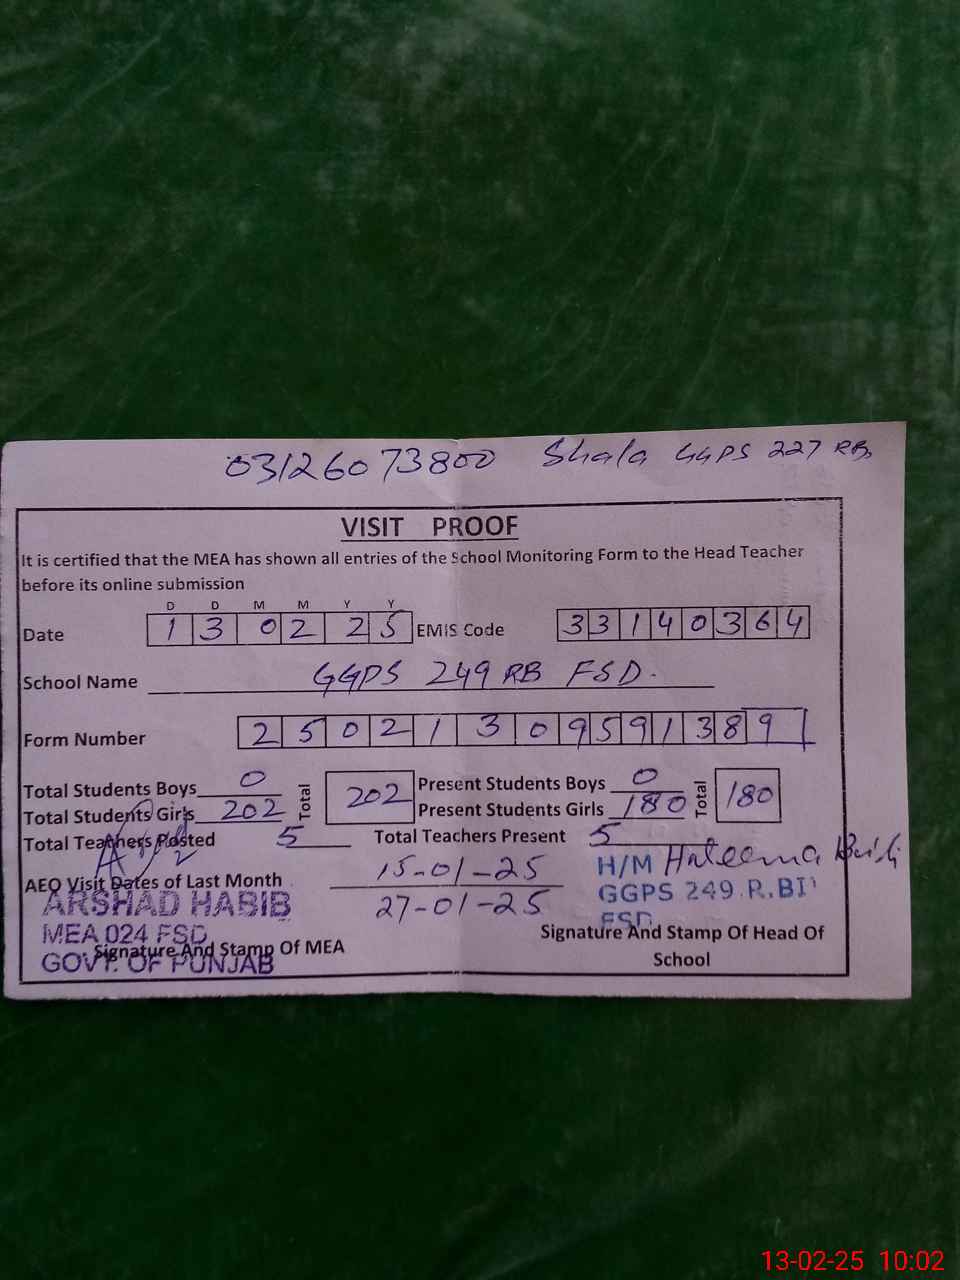 03126073800 Shala GGPS 227 RB
VISIT PROOF
It is certified that the MEA has shown all entries of the School Monitoring Form to the Head Teacher
before its online submission
D D M M Y Y
Date 1 3 0 2 2 5 EMIS Code 3 3 1 4 0 3 6 4
School Name GGPS 249 RB FSD.
Form Number 2 5 0 2 1 3 0 9 5 9 1 3 8 9
Total Students Boys 0 Total 202 Present Students Boys 0 Total 180
Total Students Girls 202 Present Students Girls 180
Total Teachers Posted 5 Total Teachers Present 5
AEO Visit Dates of Last Month 15-01-25
27-01-25
H/M Haleema
GGPS 249.R.B
FSD
ARSHAD HABIB
MEA 024 FSD
GOVT. OF PUNJAB
Signature And Stamp Of MEA
Signature And Stamp Of Head Of
School
13-02-25 10:02